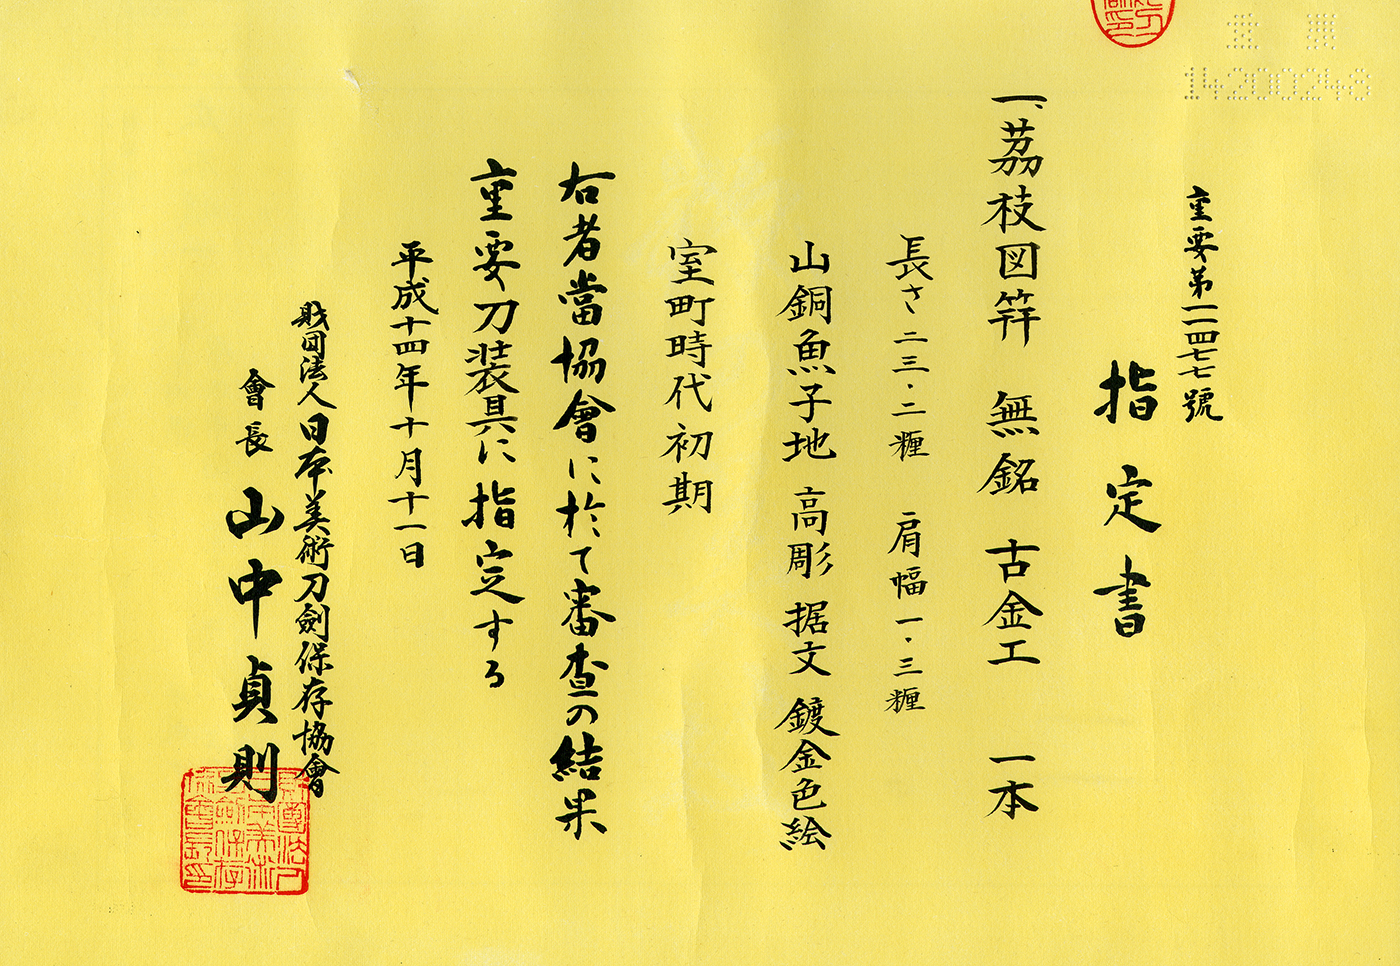 14200248
重要第一一四七七號
指定書
一、茘枝図笄 無銘 古金工 一本
長さ二三・二糎 肩幅一・三糎
山銅魚子地 高彫 据文 鍍金色絵
室町時代初期
右者當協會に於て審査の結果
重要刀装具に指定する
平成十四年十月十一日
財団法人日本美術刀劍保存協會
會長 山中貞則